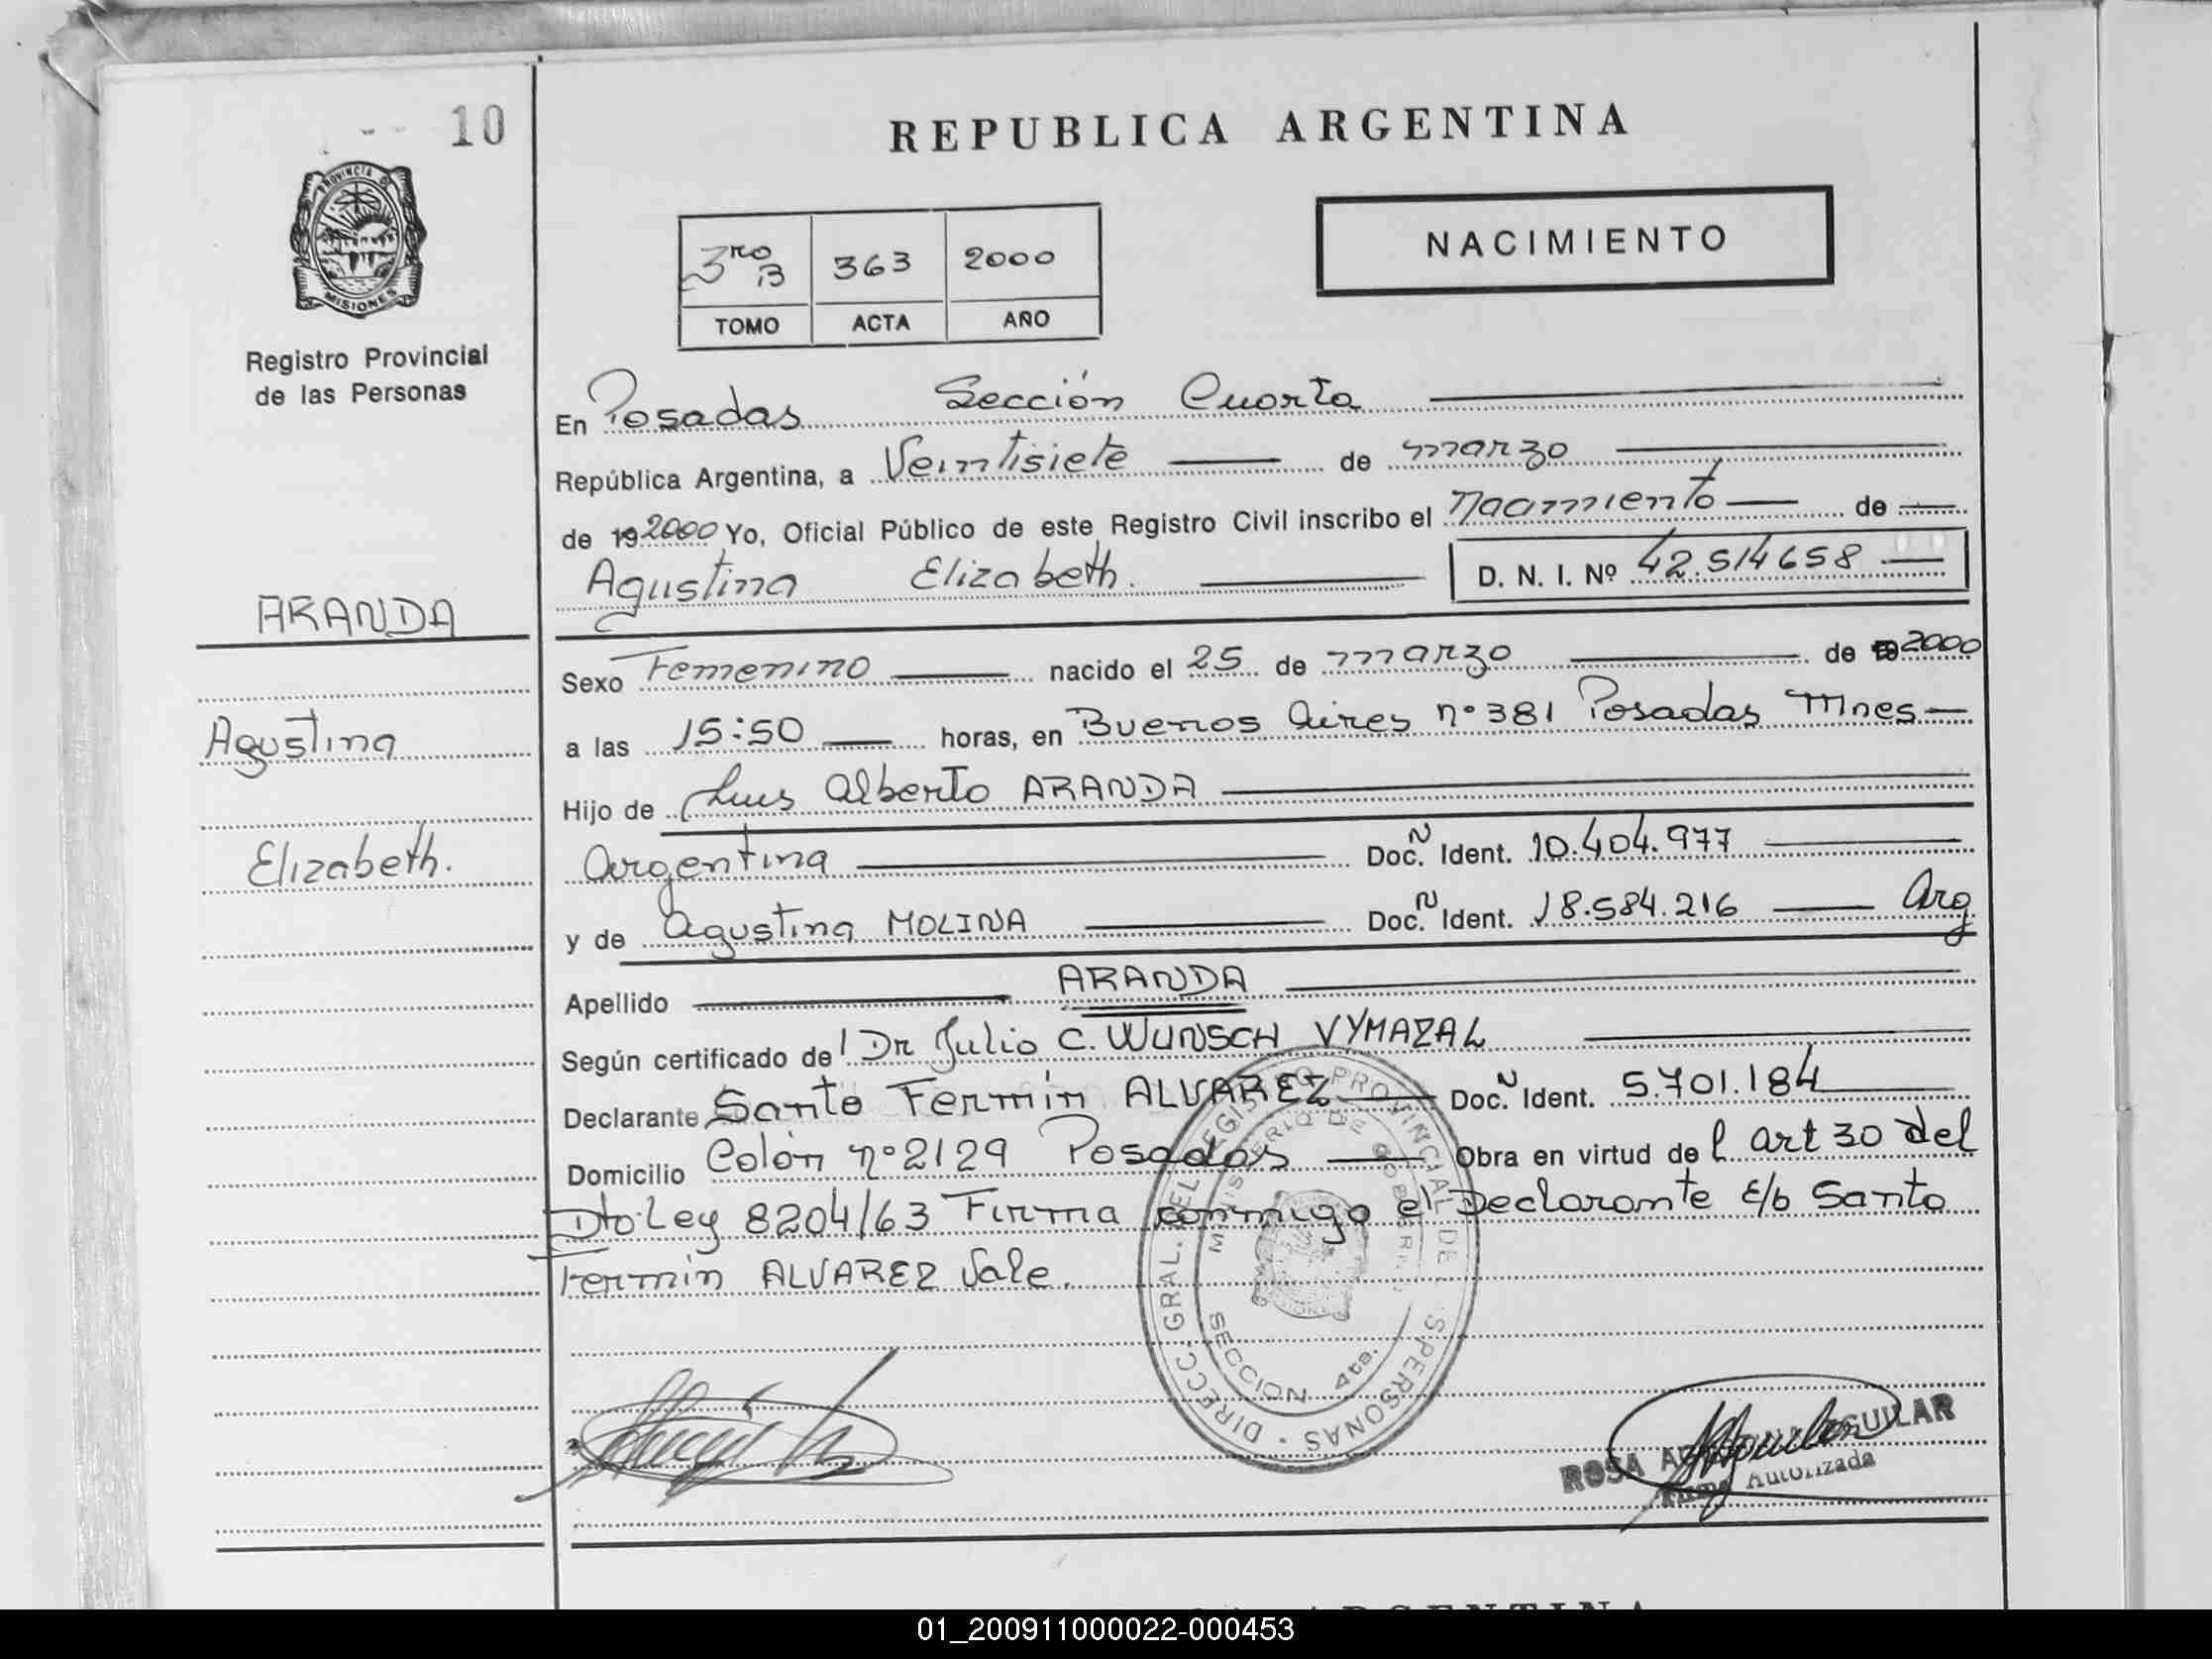 10
REPUBLICA ARGENTINA
PROVINCIA D
MISIONES
3ro B 363 2000
TOMO ACTA AÑO
NACIMIENTO
Registro Provincial
de las Personas
En Posadas Sección Cuarta
República Argentina, a Veintisiete de marzo
de 192000 Yo, Oficial Público de este Registro Civil inscribo el Nacimiento de
Agustina Elizabeth. D. N. I. Nº 42.514658
ARANDA
Agustina
Elizabeth.
Sexo Femenino nacido el 25 de marzo de 2000
a las 15:50 horas, en Buenos Aires nº 381 Posadas Mnes
Hijo de Luis Alberto ARANDA
Argentina Doc. N Ident. 10.404.977
y de Agustina MOLINA Doc. N Ident. 18.584.216 Arg
Apellido ARANDA
Según certificado de l Dr Julio C. WUNSCH VYMAZAL
Declarante Santo Fermín ALVAREZ Doc. N Ident. 5.701.184
Domicilio Colón nº 2129 Posadas Obra en virtud de l art 30 del
Dto Ley 8204/63 Firma conmigo el Declarante E/b Santo
Fermín ALVAREZ Vale.
DIRECC. GRAL. DEL REGISTRO PROVINCIAL DE PERSONAS
MINISTERIO DE GOBIERNO
SECCION 4ta.
ROSA AGUILAR
Firma Autorizada
ARGENTINA
01_200911000022-000453